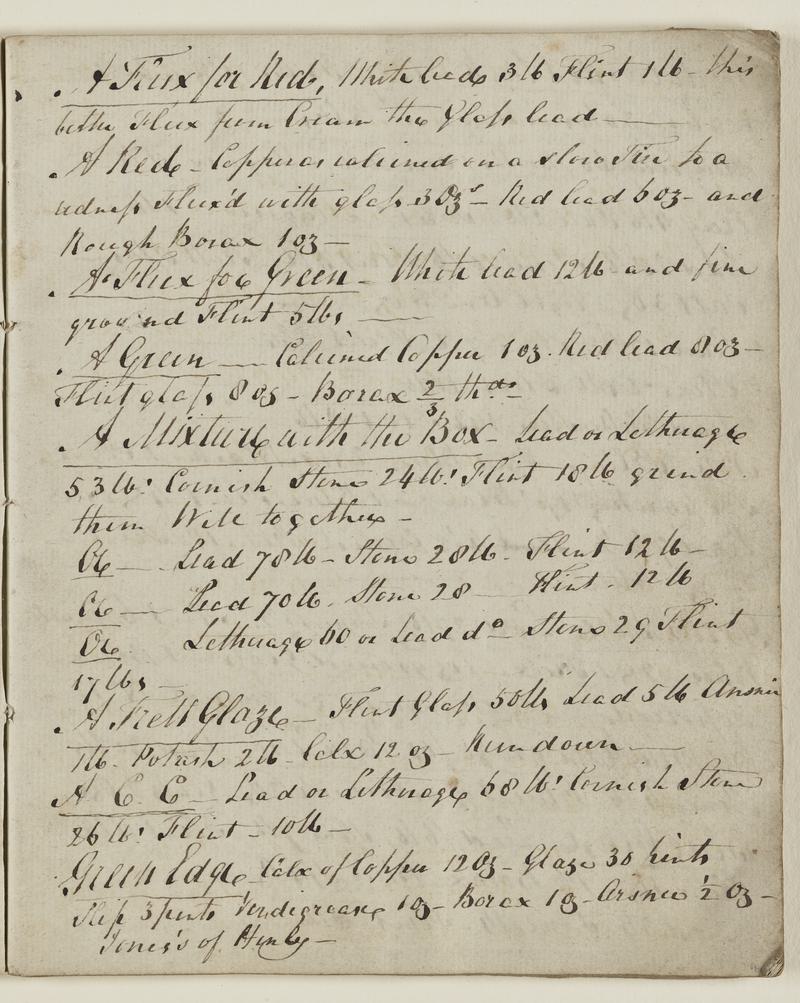 A Flux for Red, White lead 3 lb Flint 1 lb - this
better Flux from Cream the Glass lead —
A Red - Copperas calcined on a slow Fire to a
redness Flux'd with glass 3 Ozs - Red lead 6 oz - and
Rough Borax 1 oz —
A Flux for Green - White lead 12 lb and fine
ground Flint 5 lbs —
A Green — Calcined Copper 1 oz. Red lead 8 oz —
Flint glass 8 oz - Borax 2/3 thds -
A Mixture with the Box - Lead or Letherage
53 lbs Cornish Stone 24 lbs Flint 18 lb grind
them Well together -
Lead 78 lb - Stone 28 lb - Flint 12 lb -
Lead 70 lb. Stone 28 — Flint. 12 lb
Letherage 60 or Lead do - Stone 29 Flint
17 lbs -
A Frett Glaze - Flint Glass 50 lbs Lead 5 lb
1 lb - Potash 2 lb - Calx 12 oz - Run down —
A C. C - Lead or Letherage 68 lbs Cornish Stone
26 lbs Flint - 10 lb -
Green Edge - Calx of Copper 12 Oz - Glaze 30
Slip 3 pints Verdigrease 1 oz - Borax 1 oz - Arsnic 1/2 oz -
Jones's of Henley -